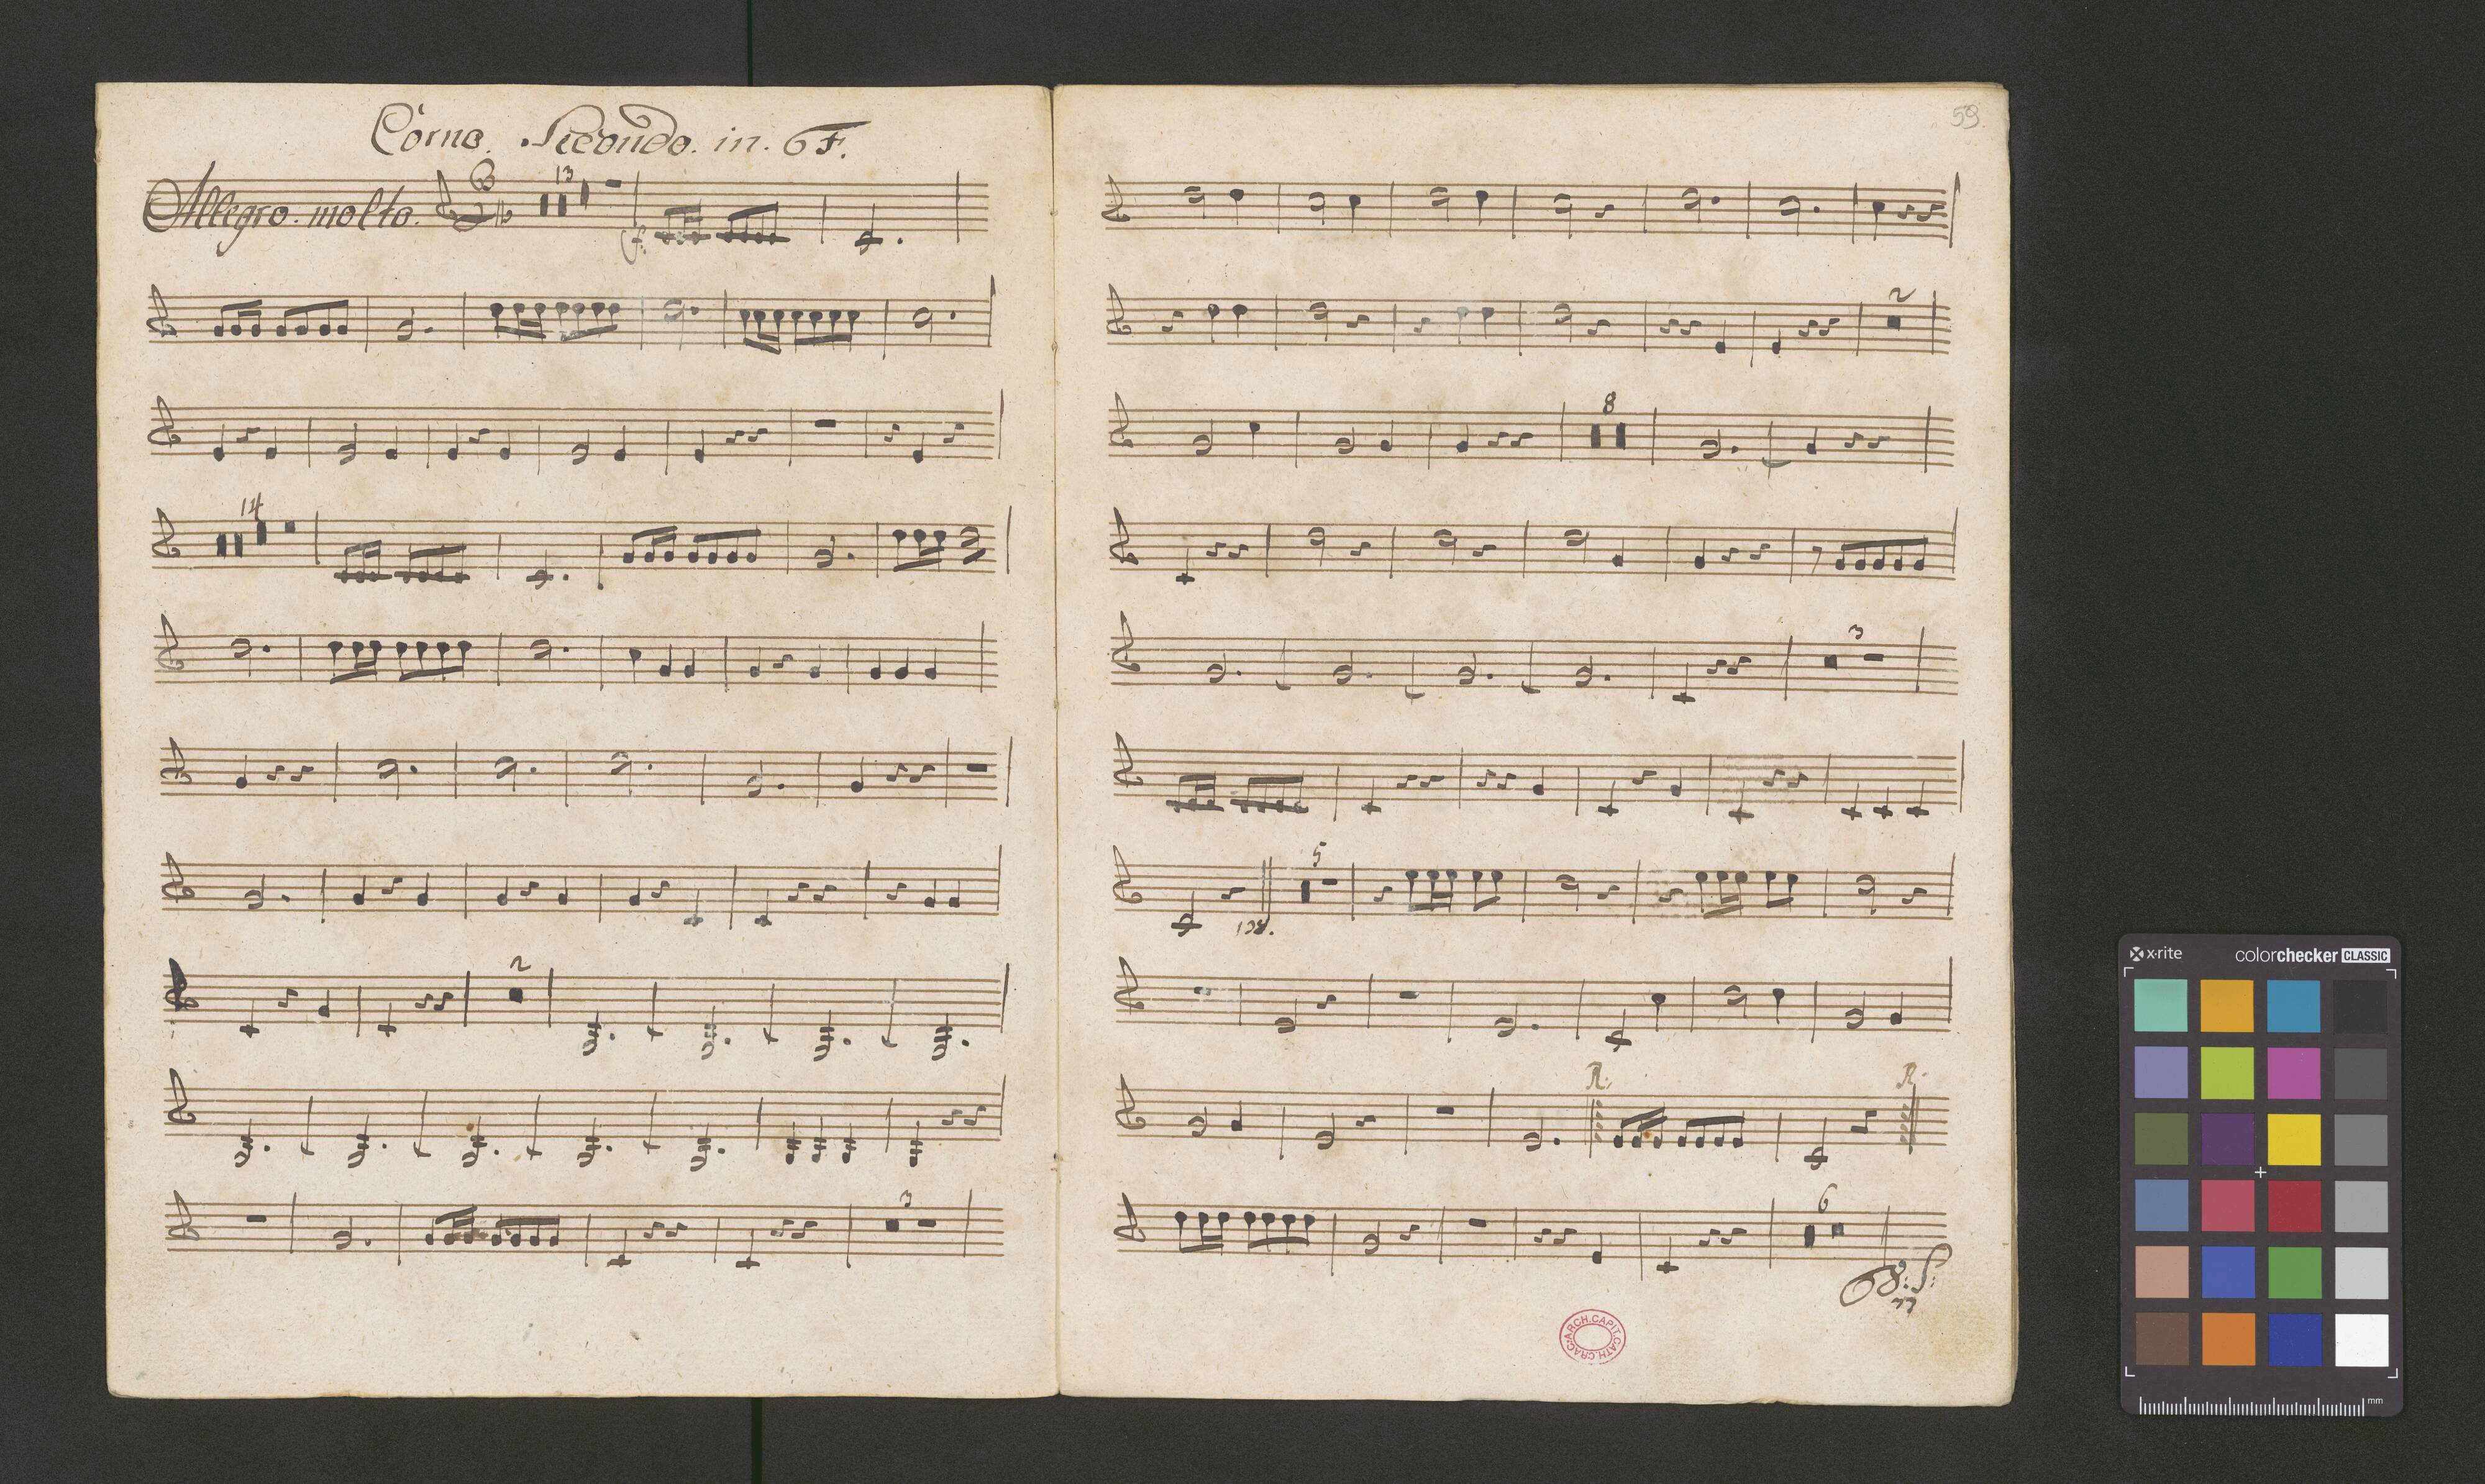 Corno. Secondo. in. 6 F.
Allegro. molto.
13
f:
14
2
3
59.
2
8
3
5
108.
R.
R.
6
ARCH.CAPIT.CATH.CRAC.
x·rite colorchecker CLASSIC
mm